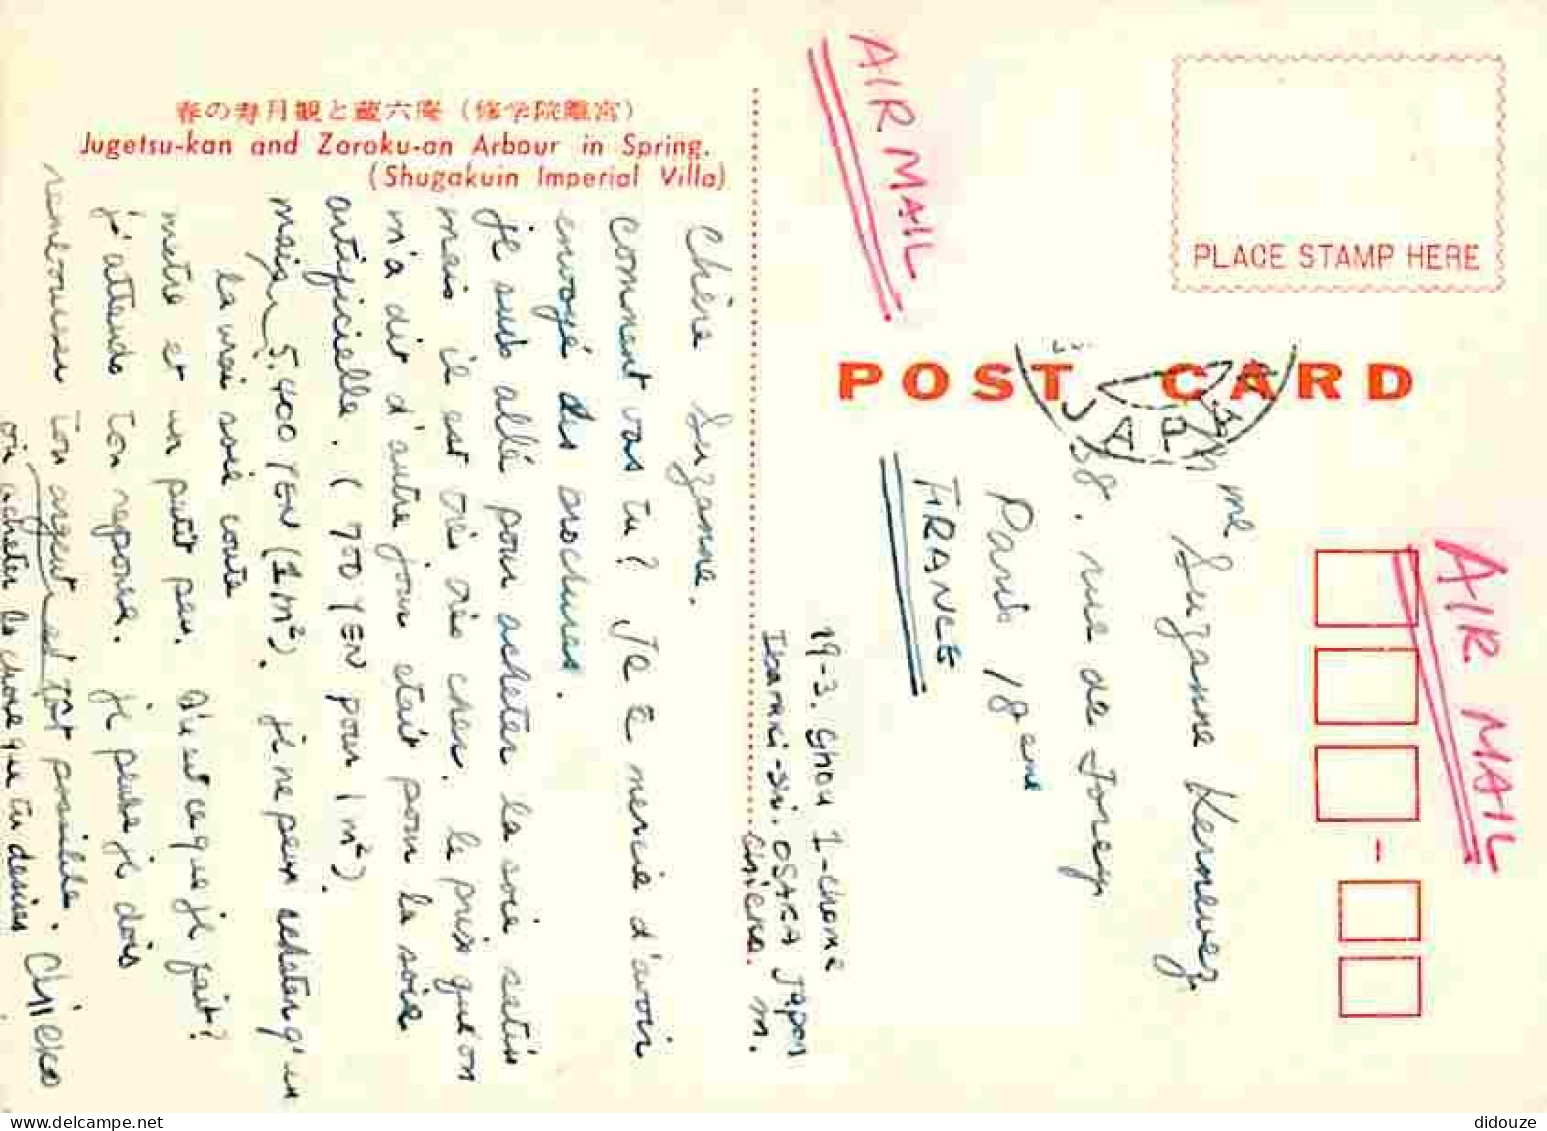 春の寿月観と蔵六庵（修学院離宮）
Jugetsu-kan and Zoroku-an Arbour in Spring.
(Shugakuin Imperial Villa)
Chère Suzanne.
Comment vas tu? Je te mercie d'avoir
envoyé des brochures.
je suis allé pour acheter la soie satin
mais il est très très cher. le prix que on
m'a dit d'autre jour etait pour la soie
artificielle. (700 YEN pour 1 m²).
5.400 YEN (1 m²). je ne peux acheter qu'un
la vrai soie coute
metre et un petit peu. Qu'est ce que je fait?
j'attends ton reponse. je pense je dois
rembourser ton argent et tôt possible.
ou acheter la chose que tu desires
Chieko
AIR MAIL
PLACE STAMP HERE
POST CARD
JAPAN
Mme Suzanne Kernevez
38, rue de Torcy
Paris 18eme
FRANCE
19-3. Shou 1-chome
Ibaraki-shi. OSAKA Japon
Chieko. M.
AIR MAIL
didouze